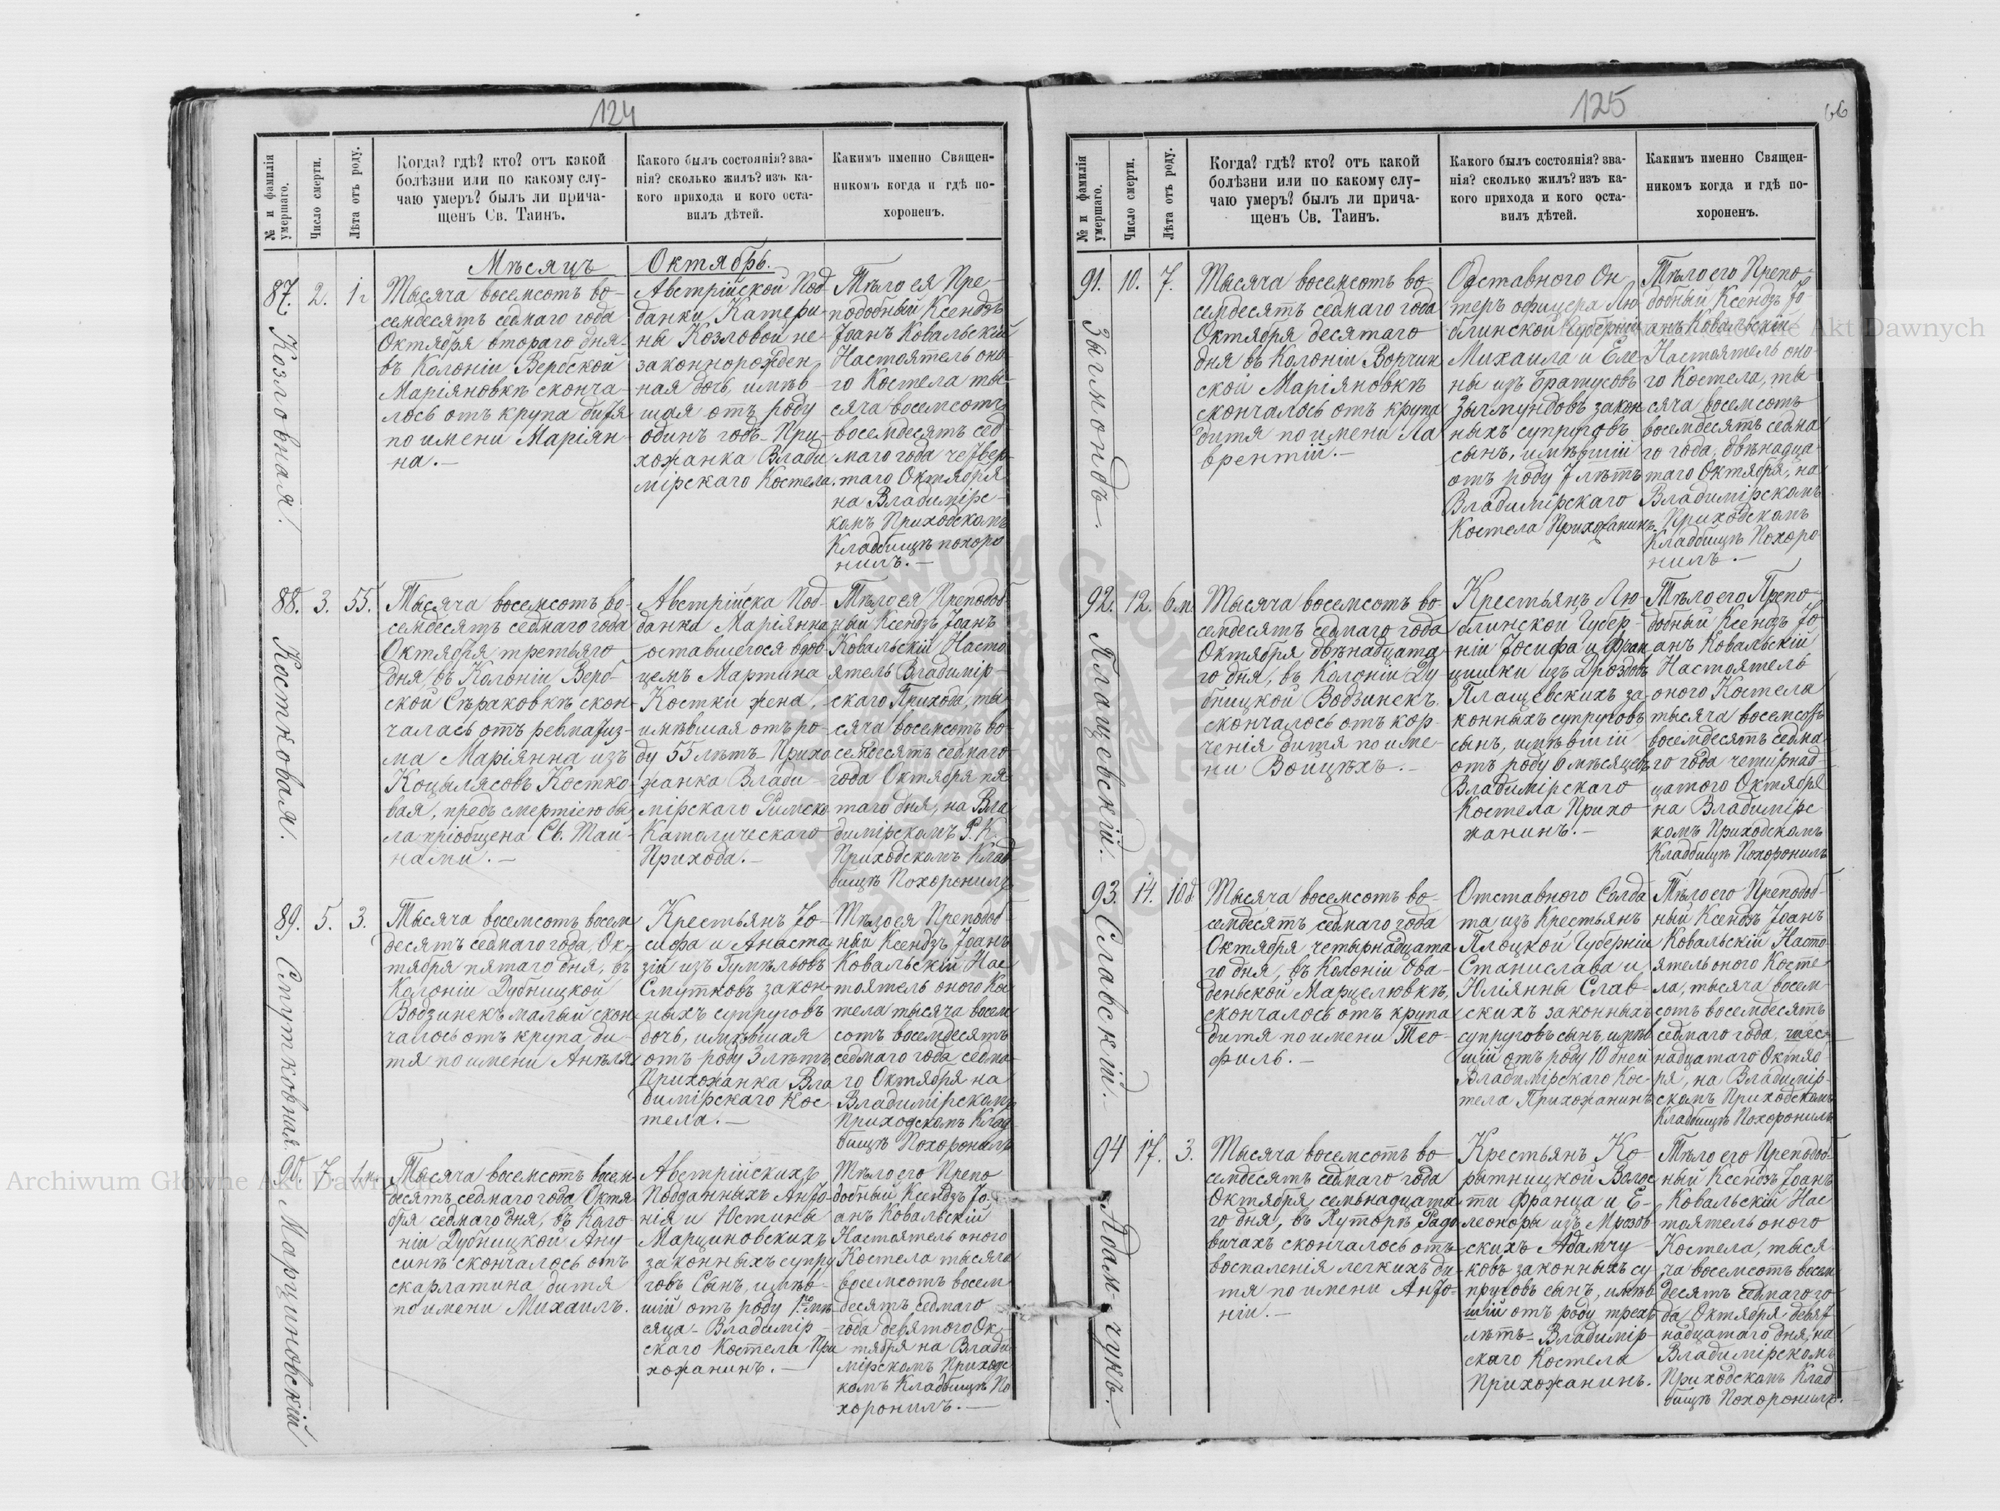 124
№ и фамилія умершаго.
Число смерти.
Лѣта отъ роду.
Когда? гдѣ? кто? отъ какой
болѣзни или по какому слу-
чаю умеръ? былъ ли прича-
щенъ Св. Таинъ.
Какого былъ состоянія? зва-
нія? сколько жилъ? изъ ка-
кого прихода и кого оста-
вилъ дѣтей.
Какимъ именно Священ-
никомъ когда и гдѣ по-
хороненъ.
Мѣсяцъ Октябрь.
87. Козловная.
2.
1 г
Тысяча восемсотъ во-
семдесятъ седмаго года
Октября втораго дня
въ Колоніи Вербской
Маріяновкѣ сконча-
лось отъ крупа дитя
по имени Маріян-
на.—
Австрійской Под-
данки Катери-
ны Козловой не-
законнорожден-
ная дочь, имѣв-
шая отъ роду
одинъ годъ - При-
хожанка Влади
мірскаго Костела.
Тѣло ея Пре-
подобный Ксендзъ
Іоанъ Ковальскій
Настоятель оно-
го Костела ты-
сяча восемсотъ
восемдесятъ сед-
маго года четвер-
таго Октября
на Владимірс
комъ Приходскомъ
Кладбищѣ похоро
нилъ.—
88. Косткова́я.
3.
55.
Тысяча восемсотъ во-
семдесятъ седмаго года
Октября третьяго
дня въ Колоніи Верб-
ской Сѣраковкѣ скон-
чалась отъ ревматиз-
ма Маріянна изъ
Коцылясовъ Костко-
вая, предъ смертію бы-
ла пріобщена Св. Тай-
нами.—
Австрійска Под-
данка Маріянна
оставшегося вдов-
цемъ Мартина
Костки жена,
имѣвшая отъ ро-
ду 55 лѣтъ - Прихо
жанка Влади-
мірскаго Римско
Католическаго
Прихода.—
Тѣло ея Преподоб-
ный Ксендзъ Іоанъ
Ковальскій Насто
ятель Владимір-
скаго Прихода, ты
сяча восемсотъ во-
семдесятъ седмаго
года Октября пя-
таго дня, на Вла
димірскомъ Р. К.
Приходскомъ Клад
бищѣ Похоронилъ
89. Смутковная
5.
3.
Тысяча восемсотъ восем
десятъ седмаго года, Ок-
тября пятаго дня, въ
Колоніи Дубницкой
Водзинекъ малый скон
чалось отъ крупа ди-
тя по имени Анѣля
Крестьянъ Іо-
сифа и Анаста
зіи изъ Гумѣльовъ
Смутковъ закон-
ныхъ супруговъ
дочь, имѣвшая
отъ роду 3 лѣтъ
Прихожанка Вла
димірскаго Кос-
тела.—
Тѣло ея Преподоб
ный Ксендзъ Іоанъ
Ковальскій Нас-
тоятель оного Ко
стела тысяча восем
сотъ восемдесятъ
седмаго года седма-
го Октября на
Владимірскомъ
Приходскомъ Клад
бищѣ Похоронилъ
90. Марциновскій
7.
Тысяча восемсотъ восем-
десятъ седмаго года Октя
бря седмаго дня, въ Коло
ніи Дубницкой Ану
синѣ скончалось отъ
скарлатина дитя
по имени Михаилъ.
Австрійскихъ
Подданныхъ Анто
нія и Юстины
Марциновскихъ
законныхъ супру
говъ Сынъ, имѣв-
шій отъ роду 1го мѣ
сяца - Владимір-
скаго Костела При
хожанинъ.—
Тѣло его Препо
добный Ксендзъ Іо-
анъ Ковальскій
Настоятель оного
Костела тысяча
восемсотъ восем
десятъ седмаго
года девятого Ок-
тября на Влади
мірскомъ Приходс
комъ Кладбищѣ По
хоронилъ.—
125
66
№ и фамилія умершаго.
Число смерти.
Лѣта отъ роду.
Когда? гдѣ? кто? отъ какой
болѣзни или по какому слу-
чаю умеръ? былъ ли прича-
щенъ Св. Таинъ.
Какого былъ состоянія? зва-
нія? сколько жилъ? изъ ка-
кого прихода и кого оста-
вилъ дѣтей.
Какимъ именно Священ-
никомъ когда и гдѣ по-
хороненъ.
91. Зыгмондъ.
10.
7.
Тысяча восемсотъ во-
семдесятъ седмаго года
Октября десятаго
дня въ Колоніи Ворчин
ской Маріяновкѣ
скончалось отъ крупа
дитя по имени Ла
врентій.—
Одставного Он
теръ офицера Лю
блинской Губерніи
Михаила и Еле
ны изъ Братусовъ
Зыгмундовъ закон
ныхъ супруговъ
сынъ, имѣвшій
отъ роду 7 лѣтъ
Владимірскаго
Костела Прихожанинъ
Тѣло его Препо-
добный Ксендзъ Іо-
анъ Ковальскій
Настоятель оно-
го Костела, ты
сяча восемсотъ
восемдесятъ седма
го года, двѣнадца
таго Октября, на
Владимірскомъ
Приходскомъ
Кладбищѣ Похоро
нилъ.—
92. Плащевскій.
12.
6 м.
Тысяча восемсотъ во-
семдесятъ седмаго года
Октября двѣнадцата
го дня, въ Колоніи Ду
бницкой Водзинекъ
скончалось отъ кор-
ченія дитя по име-
ни Воицѣхъ.—
Крестьянъ Лю
блинской Губер-
ніи Іосифа и Фран
цишки изъ Дроздовъ
Плащевскихъ за-
конныхъ супруговъ
сынъ, имѣвшій
отъ роду 6 мѣсяцевъ
Владимірскаго
Костела Прихо
жанинъ.—
Тѣло его Препо-
добный Ксендзъ Іо
анъ Ковальскій
Настоятель
оного Костела
тысяча восемсотъ
восемдесятъ седма-
го года четирнад-
цатого Октября
на Владимірс
комъ Приходскомъ
Кладбищѣ Похоронилъ
93. Славскій.
14.
10 д
Тысяча восемсотъ во-
семдесятъ седмаго года
Октября четырнадцата
го дня, въ Колоніи Ова-
деньской Марцелювкѣ,
скончалось отъ крупа
дитя по имени Тео-
филь.—
Отставного Солда
та изъ Крестьянъ
Плоцкой Губерніи
Станислава и
Юліянны Слав-
скихъ законныхъ
супруговъ сынъ, имѣв
шій отъ роду 10 дней
Владимірскаго Кос-
тела Прихожанинъ
Тѣло его Преподоб-
ный Ксендзъ Іоанъ
Ковальскій Насто-
ятель оного Косте-
ла, тысяча восем-
сотъ восемдесятъ
седмаго года, шест-
надцатаго Октяб-
ря, на Владимір-
скомъ Приходскомъ
Кладбищѣ Похоронилъ
94 Адамчукъ.
17.
3.
Тысяча восемсотъ во-
семдесятъ седмаго года
Октября семьнадцата
го дня, въ Хуторѣ Радо
вичахъ скончалось отъ
воспаленія легкихъ ди-
тя по имени Анто-
ній.—
Крестьянъ Ко
рытницкой Волос
ти Франца и Е-
леоноры изъ Мрозов
скихъ Адамчу-
ковъ законныхъ су
пруговъ сынъ, имѣв
шій отъ роду трехъ
лѣтъ - Владимір-
скаго Костела
Прихожанинъ.
Тѣло его Преподоб
ный Ксендзъ Іоанъ
Ковальскій Нас-
тоятель оного
Костела, тыся-
ча восемсотъ восем
десятъ седмаго го-
да Октября девят
надцатаго дня, на
Владимірскомъ
Приходскомъ Клад
бищѣ Похоронилъ.
Archiwum Główne Akt Dawnych